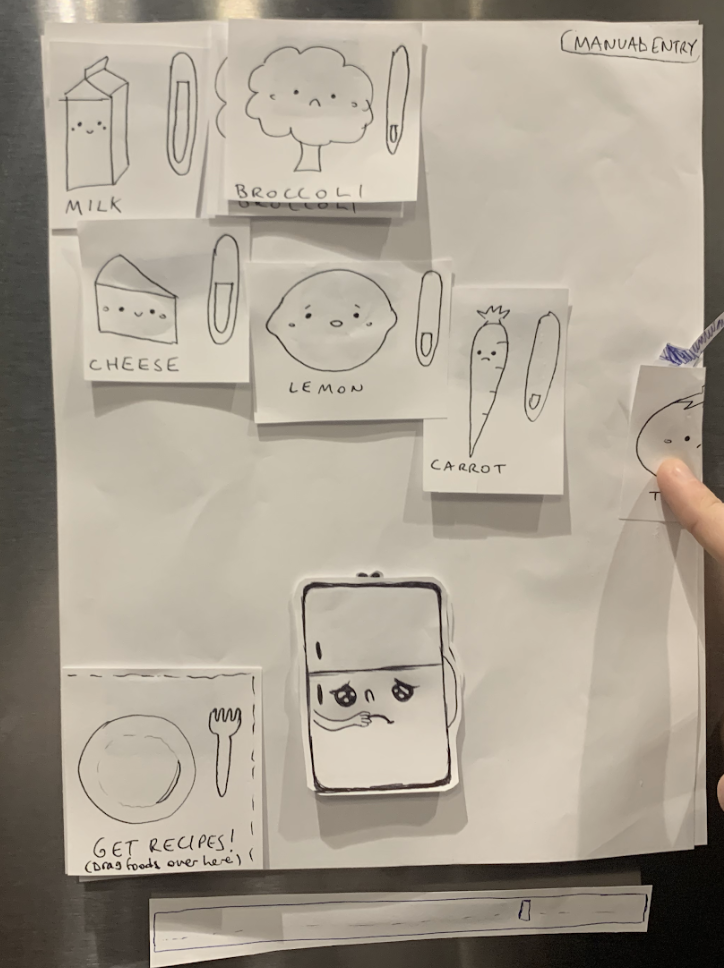 MANUAL ENTRY
MILK
BROCCOLI
BROCCOLI
CHEESE
LEMON
CARROT
T
GET RECIPES!
(Drag foods over here)